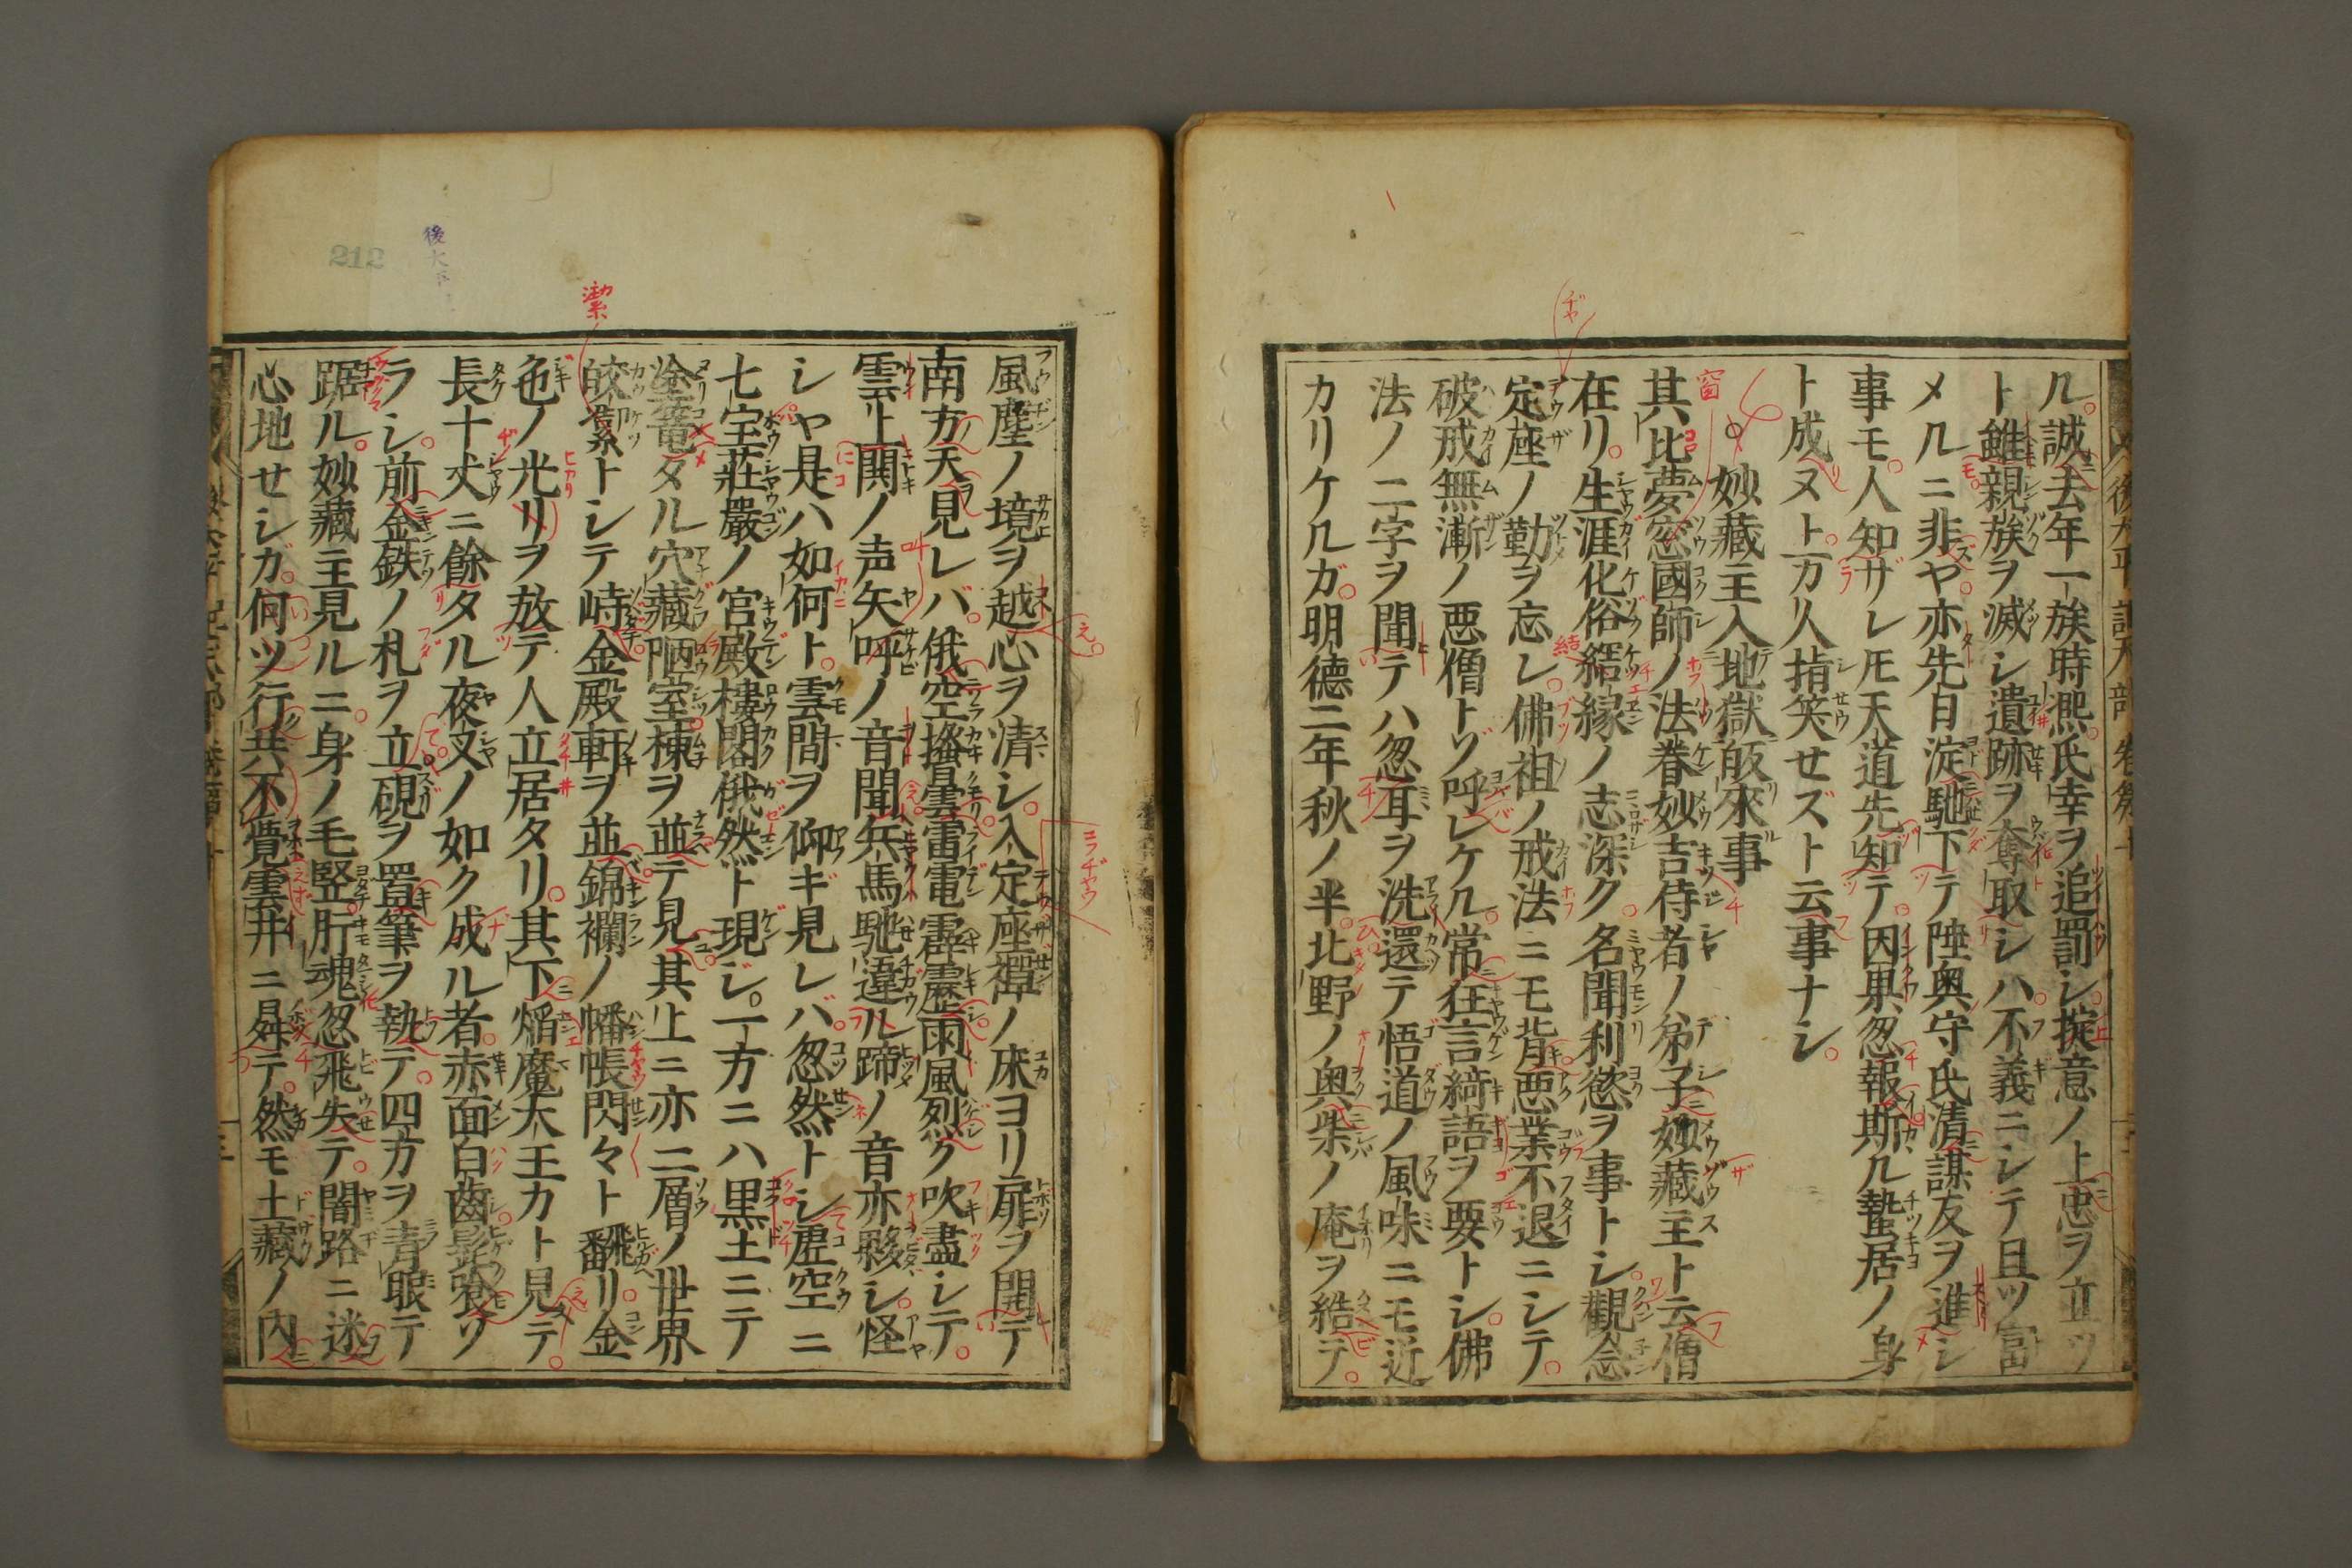 ル。誠ニ去年一族時熈氏幸ヲ追罰シ。掟意ノ上忠ヲ立ツ
ト雖親族ヲ滅シ遺跡ヲ奪取シハ不義ニシテ且ツ富
メルニ非ヤ亦先日淀馳下テ陸奥守氏清謀友ヲ進シ
事モ。人知ザレ𪜈天道先知テ。因果忽報斯ル蟄居ノ身
ト成ヌト。万人指笑セズト云事ナシ。
○妙藏主入地獄皈來事
其比夢窓國師ノ法眷妙吉侍者ノ弟子妙藏主ト云僧
在リ。生涯化俗結縁ノ志深ク。名聞利慾ヲ事トシ。觀念
定座ノ勤ヲ忘レ。佛祖ノ戒法ニモ背悪業不退ニシテ。
破戒無漸ノ悪僧トゾ呼レケル。常狂言綺語ヲ要トシ。佛
法ノ二字ヲ聞テハ忽耳ヲ洗還テ悟道ノ風味ニモ近
カリケルガ。明德二年秋ノ半。北野ノ奥柴ノ庵ヲ結テ。
風塵ノ境ヲ越心ヲ清シ。入定座禪ノ床ヨリ扉ヲ開テ
南方天見レバ。俄空搔曇雷電霹靂雨風烈ク吹盡シテ。
雲上関ノ声矢呼ノ音聞兵馬馳違ル蹄ノ音亦夥シ。怪
シヤ是ハ如何ト。雲間ヲ仰ギ見レバ。忽然トシ虚空ニ
七宝莊嚴ノ宮殿樓閣俄然ト現ジ。一方ニハ黒土ニテ
塗篭タル穴藏陋室棟ヲ並テ見。其上ニ亦二層ノ世界
皎潔トシテ峙金殿軒ヲ並錦襴ノ幡帳閃々ト飜リ。金
色ノ光リヲ放テ人立居タリ。其下焔魔大王カト見テ。
長十丈ニ餘タル夜叉ノ如ク成ル者。赤面白歯髭䫇ソ
ラシ。前金鉄ノ札ヲ立硯ヲ置筆ヲ執テ。四方ヲ青眼テ
踞ル。妙藏主見ルニ。身ノ毛竪。肝魂忽飛失テ。闇路ニ迷
心地せシガ。何ツ行共不覺雲井ニ曻テ。然モ土藏ノ内
212
窗
潔